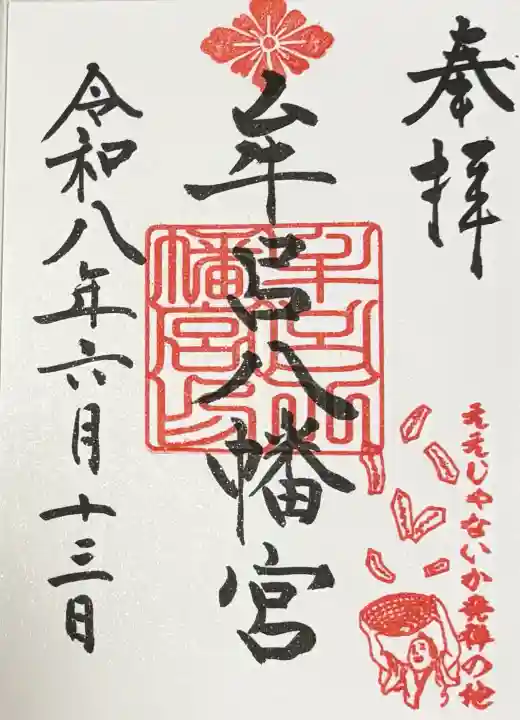 奉拝
牟呂八幡宮
令和八年六月十三日
牟呂八幡宮印
ええじゃないか発祥の地